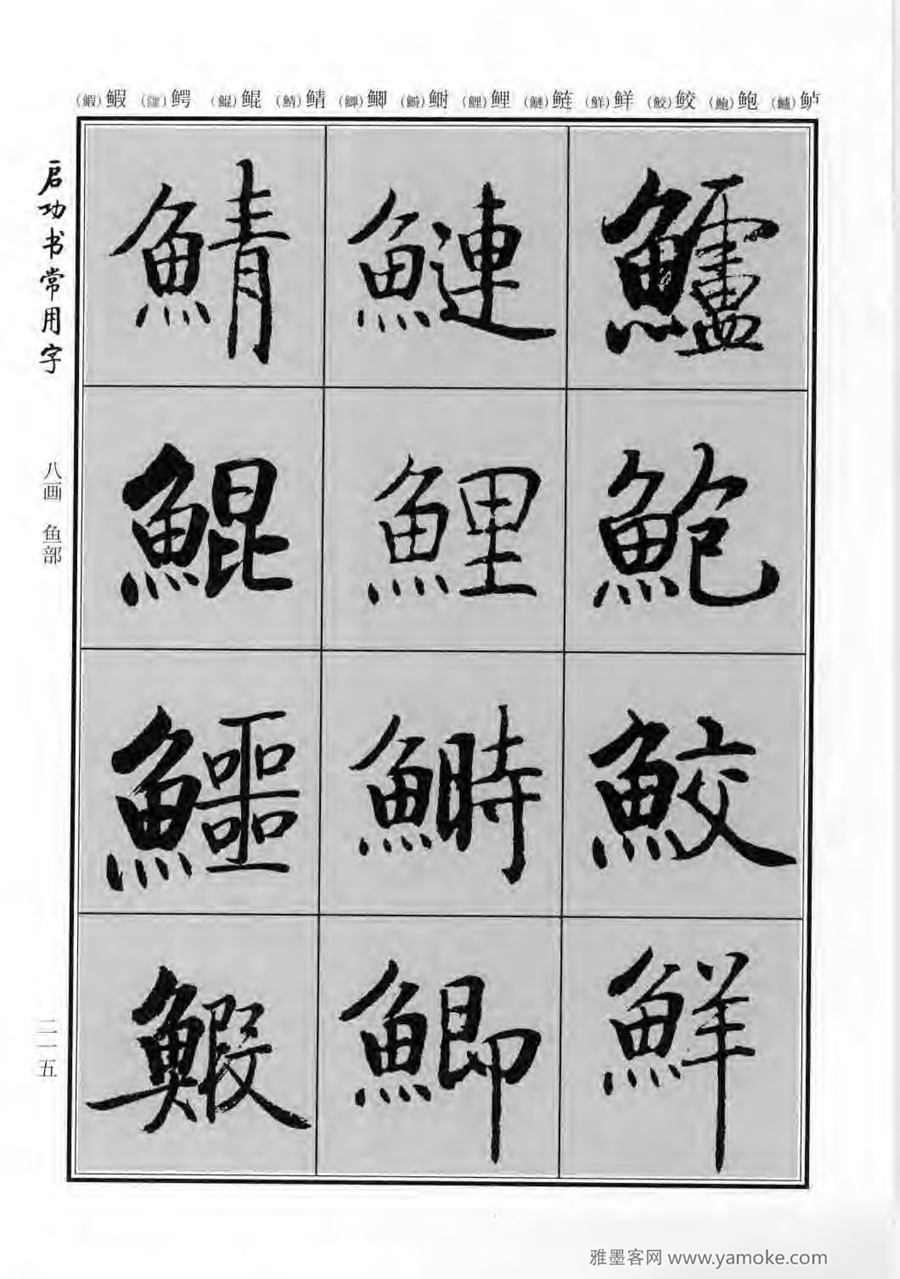 (鰕)鰕 (鱷)鳄 (鯤)鲲 (鯖)鲭 (鯽)鲫 (鰣)鲥 (鯉)鲤 (鰱)鲢 (鮮)鲜 (鮫)鲛 (鮑)鲍 (鱸)鲈
启功书常用字
八画 鱼部
二一五
鱸
鮑
鮫
鮮
鰱
鯉
鰣
鯽
鯖
鯤
鱷
鰕
雅墨客网 www.yamoke.com